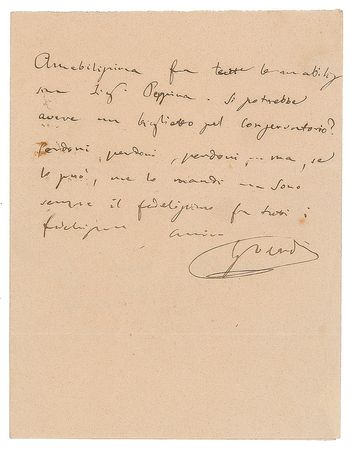 Amabilissima fra tutte le amabili,
Sig.ª Peppina. Si potrebbe
avere un biglietto pel Conservatorio?
Perdoni, perdoni, perdoni, ... ma, se
lo può, me lo mandi Sono
sempre il fedelissimo fra tutti i
fedelissimi amici
GVerdi